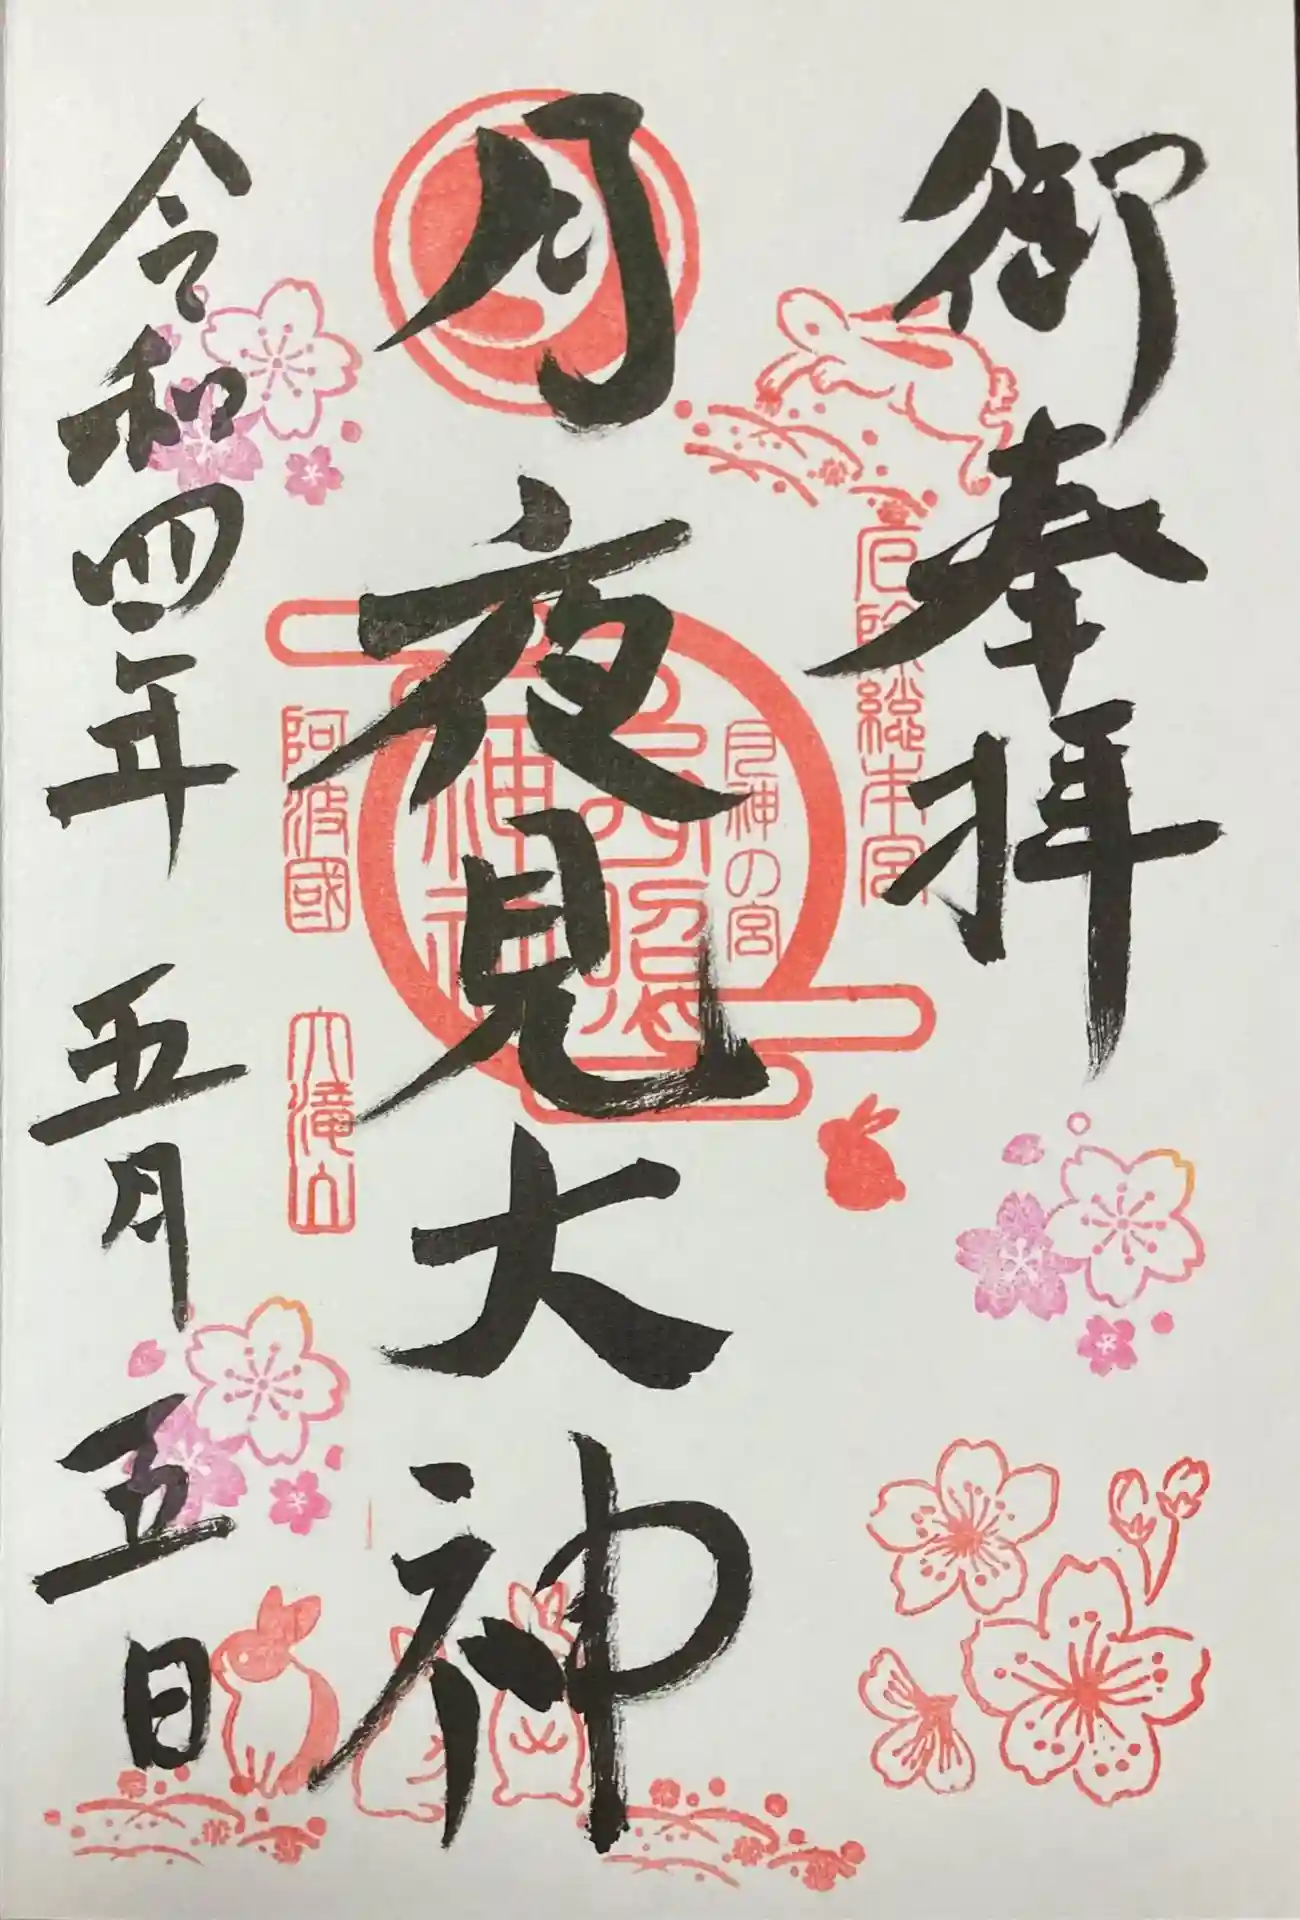 御奉拝
厄除総本宮
月神の宮
月夜見大神
阿波國
大滝山
令和四年 五月 五日